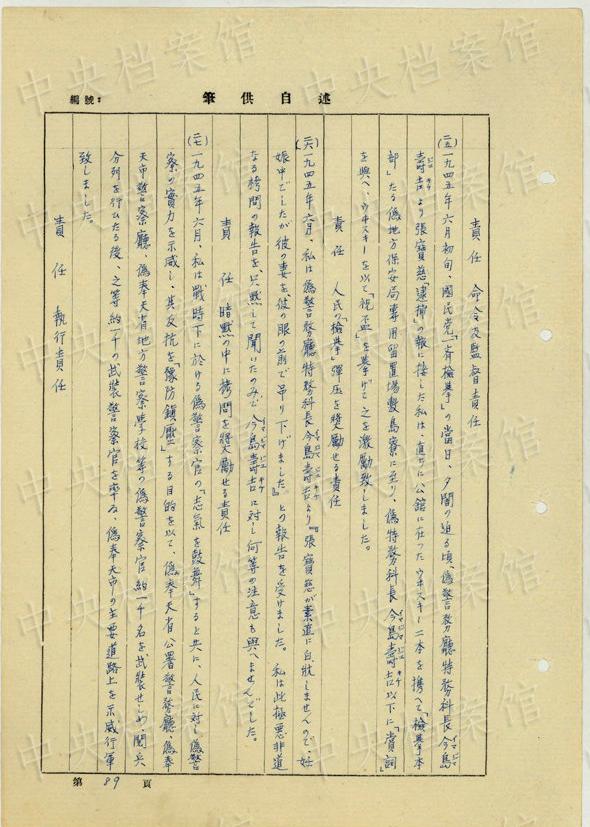 編號:
筆供自述
責任 命令及監督責任
(二五)一九四五年六月初旬、國民党「一斉檢擧」の當日、夕闇の迫る頃、偽警務廳特務科長今島
壽吉より張寶慈「逮捕」の報に接した私は、直ちに公館に在つたウヰスキー二本を携へて「檢擧本
部」たる偽地方保安局専用留置場敷島寮に至り、偽特務科長今島壽吉以下に「賞詞」
を興へ、ウヰスキーを以て「祝盃」を擧げて之を激励致しました。
責任 人民の「檢擧」彈圧を奬勵せる責任
(二六)一九四五年六月、私は偽警務廳特務科長今島壽吉より『張寶慈が素直に自狀しませんので、妊
娠中でしたが彼の妻を彼の眼の前で吊り下げました』との報告を受けました。私は此極悪非道
なる拷問の報告を、只黙して聞いたのみで今島壽吉に対し何等の注意も興へませんでした。
責任 暗黙の中に拷問を奬励せる責任
(二七)一九四五年六月、私は戰時下に於ける偽警察官の「志氣を鼓舞」すると共に、人民に対し偽警
察の實力を示威し、其反抗を「豫防鎮壓」する目的を以て、偽奉天省公署警務廳、偽奉
天市警察廳、偽奉天省地方警察學校等の偽警察官約一千名を武裝せしめ、閲兵
分列を行ひたる後、之等約一千の武裝警察官を率ゐ、偽奉天市の主要道路上を示威行軍
致しました。
責任 執行責任
第89頁
中央档案馆